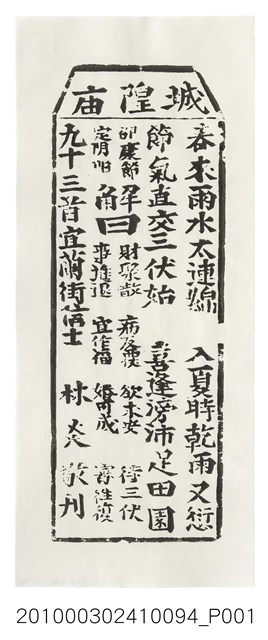 城隍庙
春來雨水太連綿 入夏時乾雨又愆
節氣直交三伏始 喜逢滂沛足田園
邵康節
定阴阳
解曰
財聚散 病反覆 欲求安 待三伏
事進退 宜作福 婚可成 審往復
九十三首宜蘭街信士 林炎敬刊
201000302410094_P001